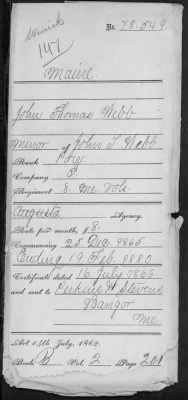 Minor
No. 78.549
147
Maine.
John Thomas Webb
minor of John T. Webb
Rank Priv
Company
Regiment 8. Me Vols.
Augusta Agency.
Rate per month, $8.
Commencing 25 Dec 1865.
Ending 19 Feb. 1880
Certificate dated 16 July 1866
and sent to Perkins & Stevens
Bangor
Me
Act 14th July, 1862.
Book B Vol. 2 Page 201